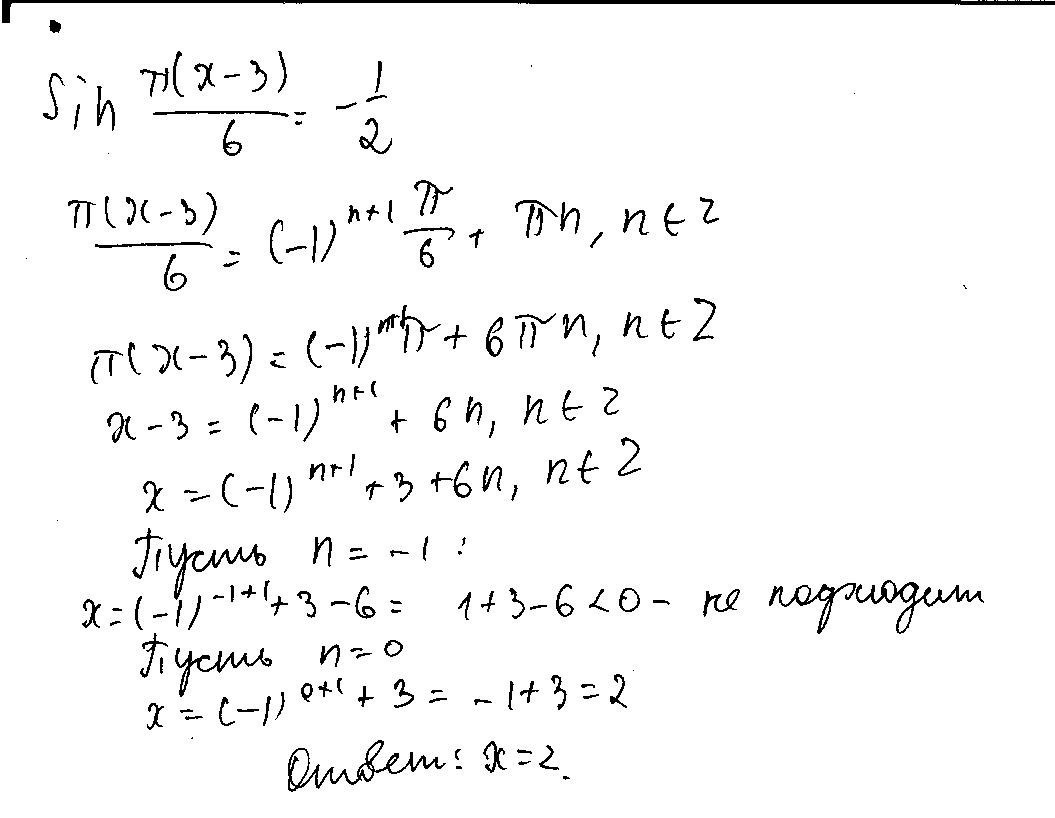 sin π(x-3)/6 = -1/2
π(x-3)/6 = (-1)^(n+1) π/6 + πn, n∈Z
π(x-3) = (-1)^(n+1) π + 6πn, n∈Z
x-3 = (-1)^(n+1) + 6n, n∈Z
x = (-1)^(n+1) + 3 + 6n, n∈Z
Пусть n = -1 :
x = (-1)^(-1+1) + 3 - 6 = 1+3-6 < 0 - не подходит
Пусть n = 0
x = (-1)^(0+1) + 3 = -1+3 = 2
Ответ: x=2.